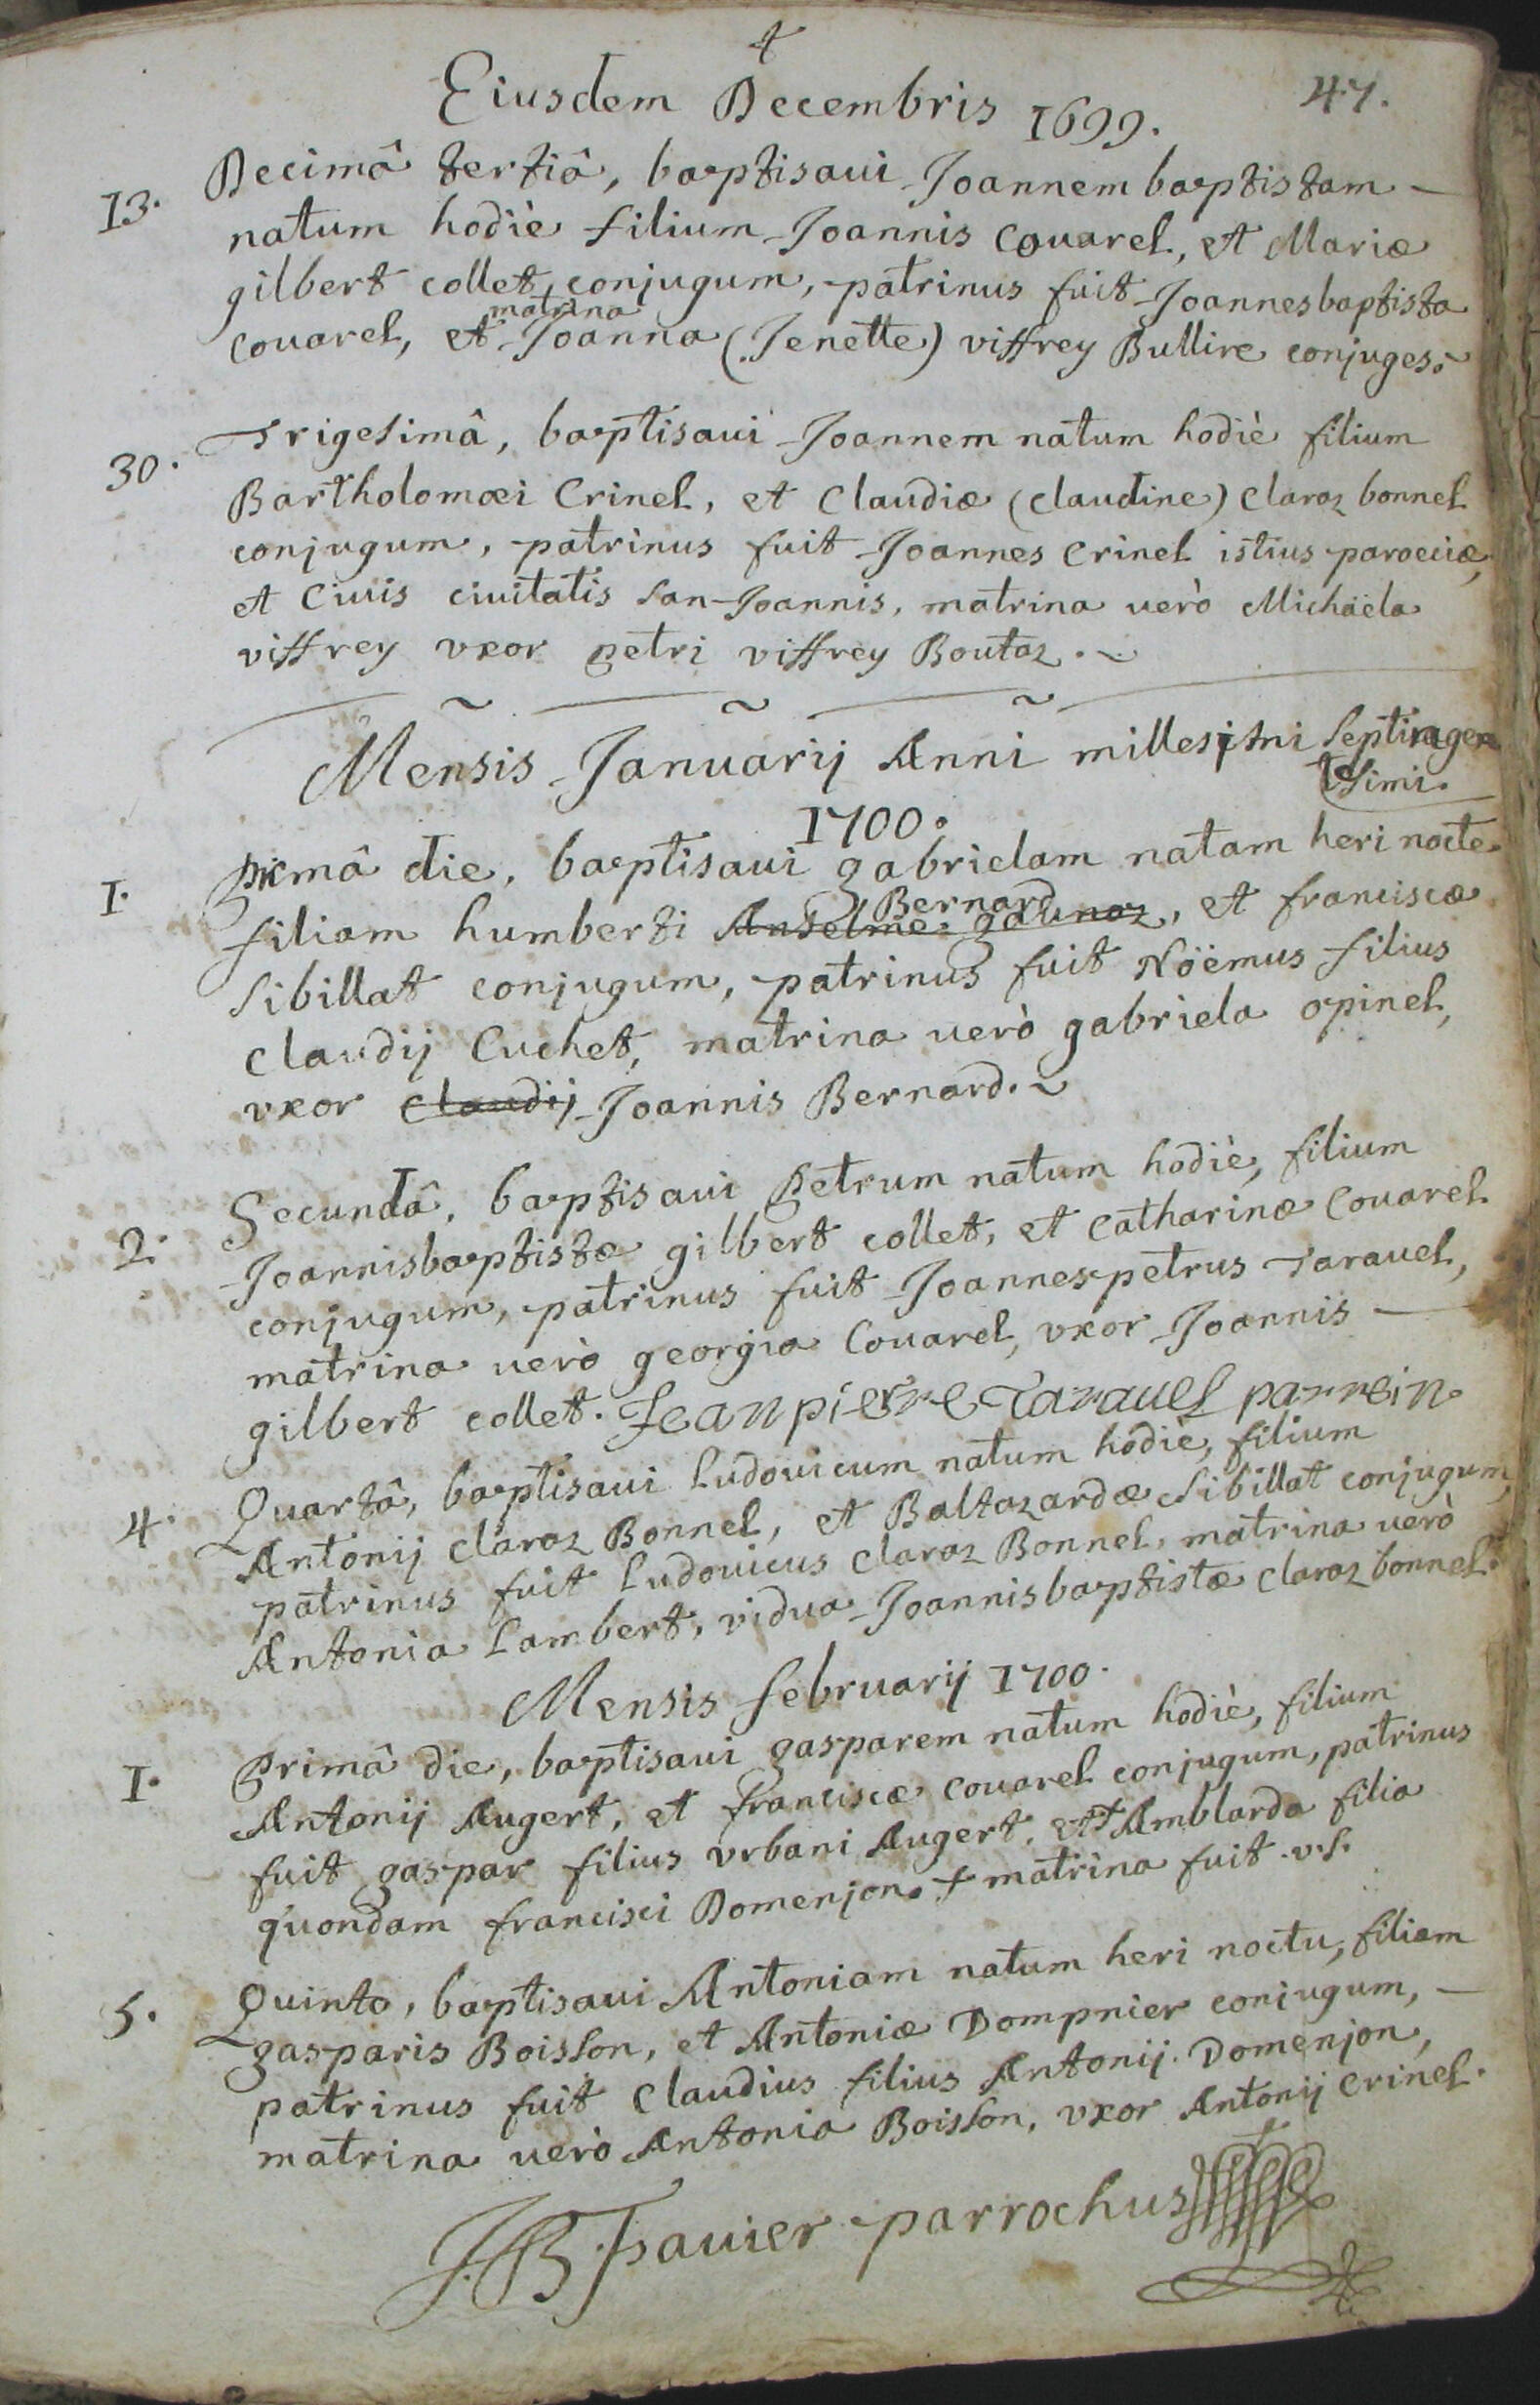 Eiusdem Decembris 1699. 47.
13. Decimâ tertiâ, baptisaui Joannem baptistam
natum hodiè filium Joannis Couarel, et Mariæ
gilbert collet, conjugum, patrinus fuit Joannesbaptista
matrina
Couarel, et Joanna (Jenette) viffrey Bullire conjuges.
30. Trigesimâ, baptisaui Joannem natum hodiè filium
Bartholomæi Crinel, et Claudiæ (claudine) Claraz bonnel
conjugum, patrinus fuit Joannes Crinel istius paroeciæ,
et Ciuis ciuitatis San-Joannis, matrina uerò Michaëla
viffrey vxor petri viffrey Boutaz.
Mensis Januarij Anni millesimi Septingen
tesimi.
1700.
1. prmâ die, baptisaui gabrielam natam heri nocte
Bernard
filiam humberti Anselme, et franciscæ
Sibillat conjugum, patrinus fuit Nöëmus filius
Claudij Cuchet, matrina uerò gabriela opinel,
vxor Claudij Joannis Bernard.
2. Secundâ, baptisaui petrum natum hodiè, filium
Joannisbaptistæ gilbert collet, et Catharinæ Couarel
conjugum, patrinus fuit Joannespetrus Tarauel,
matrina uerò georgia Couarel, vxor Joannis
gilbert collet. Jean pierre Tarauel parrein
4. Quartâ, baptisaui Ludouicum natum hodiè, filium
Antonij Claraz Bonnel, et Baltazardæ Sibillat conjugum,
patrinus fuit Ludouicus Claraz Bonnel, matrina uerò
Antonia Lambert, vidua Joannisbaptistæ Claraz bonnel.
Mensis februarij 1700.
1. Primâ die, baptisaui gasparem natum hodiè, filium
Antonij Augert, et franciscæ Couarel conjugum, patrinus
fuit gaspar filius vrbani Augert, et Amblarda filia
quondam francisci Domenjon. + matrina fuit v.s.
5. Quinta, baptisaui Antoniam natum heri noctu, filiam
gasparis Boisson, et Antoniæ Dompnier conjugum,
patrinus fuit Claudius filius Antonij Domenjon,
matrina uerò Antonia Boisson, vxor Antonij Crinel.
parrochus